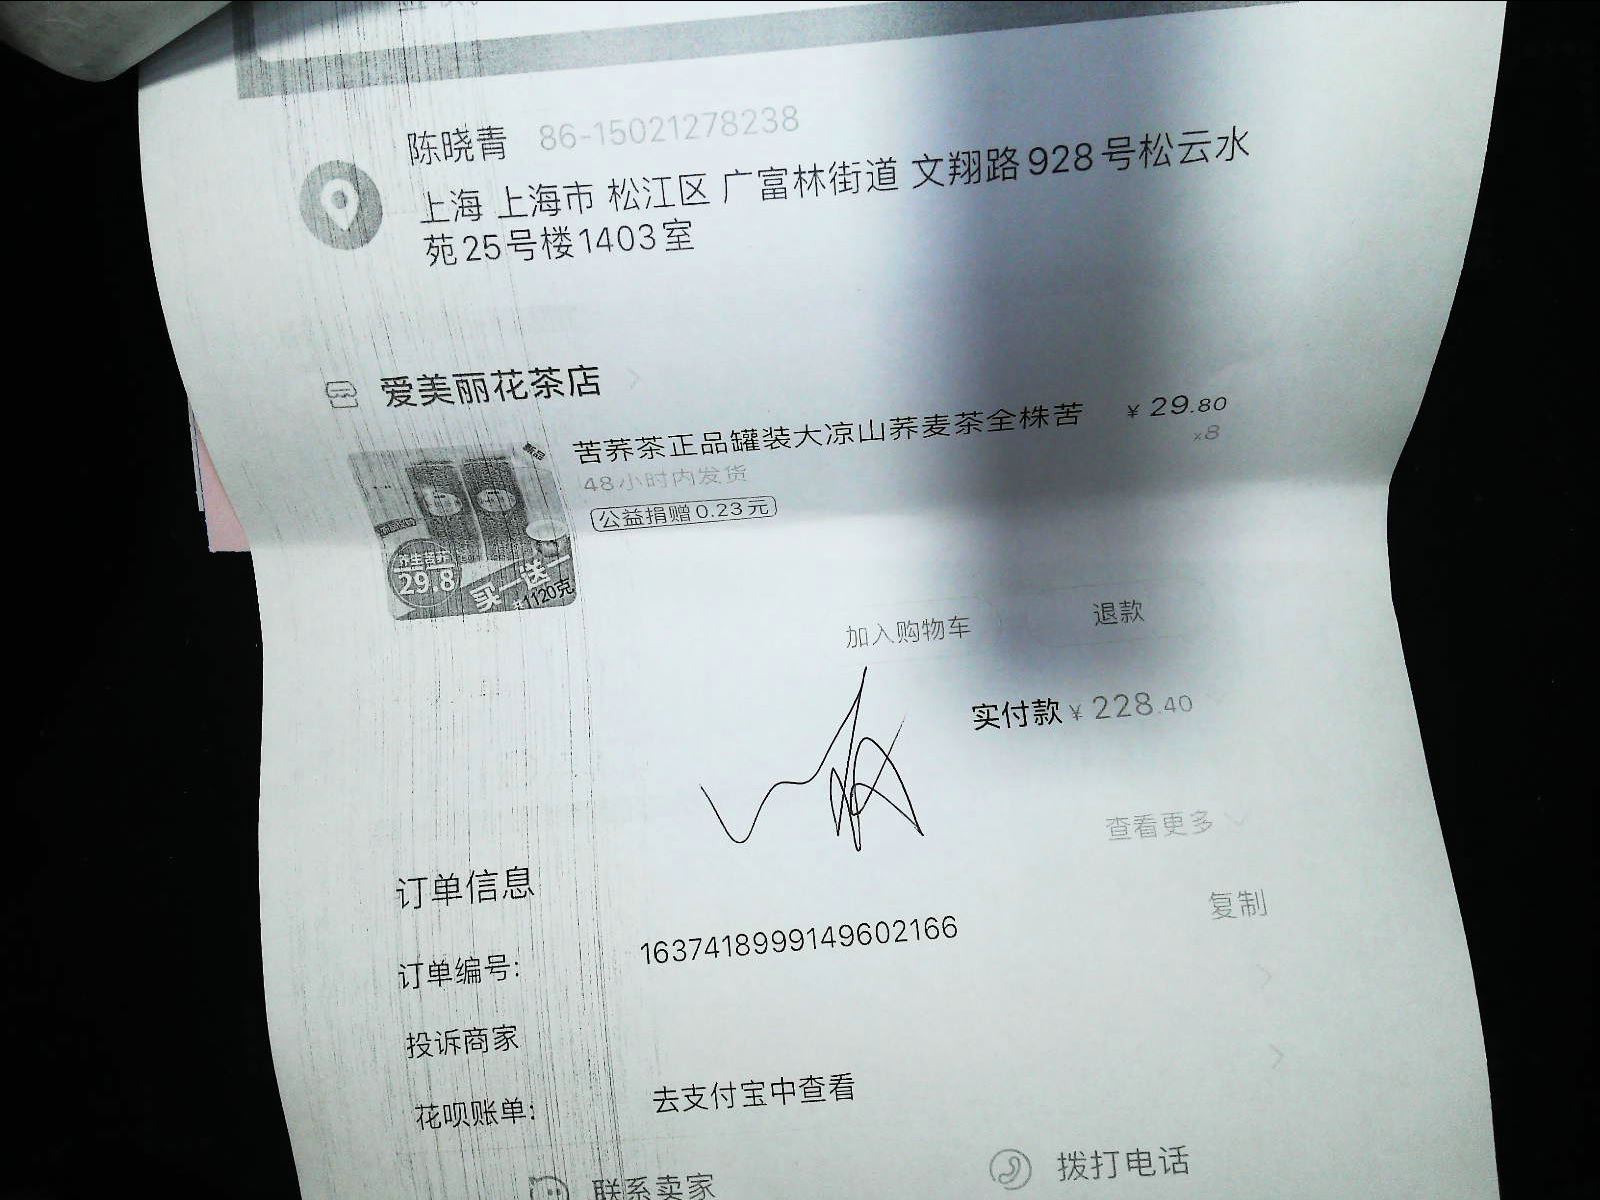 陈晓青 86-15021278238
上海 上海市 松江区 广富林街道 文翔路928号松云水
苑25号楼1403室
爱美丽花茶店
苦荞茶正品罐装大凉山荞麦茶全株苦 ¥29.80
48小时内发货 ×8
公益捐赠0.23元
29.8
买一送一
1120克
加入购物车 退款
实付款 ¥228.40
查看更多
订单信息
订单编号: 1637418999149602166 复制
投诉商家
花呗账单: 去支付宝中查看
联系卖家 拨打电话